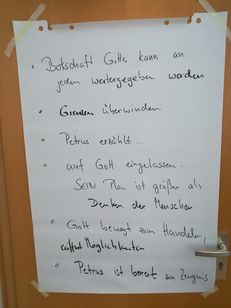 • Botschaft Gottes kann an
jeden weitergegeben werden
• Grenzen überwinden
• Petrus erzählt...
• auf Gott eingelassen.
SEIN Plan ist größer als
Denken der Menschen
• Gott bewegt zum Handeln,
eröffnet Möglichkeiten
• Petrus ist bereit zum Zeugnis